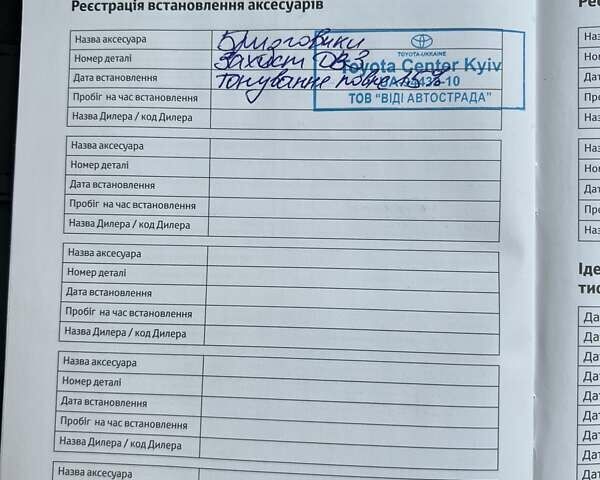 Реєстрація встановлення аксесуарів
Назва аксесуара Бризговики
Номер деталі Захист ДВЗ
Дата встановлення Тонування повне
Пробіг на час встановлення
Назва Дилера / код Дилера
TOYOTA-UKRAINE
Toyota Center Kyiv
ТОВ "ВІДІ АВТОСТРАДА"
Назва аксесуара
Номер деталі
Дата встановлення
Пробіг на час встановлення
Назва Дилера / код Дилера
Назва аксесуара
Номер деталі
Дата встановлення
Пробіг на час встановлення
Назва Дилера / код Дилера
Назва аксесуара
Номер деталі
Дата встановлення
Пробіг на час встановлення
Назва Дилера / код Дилера
Назва аксесуара